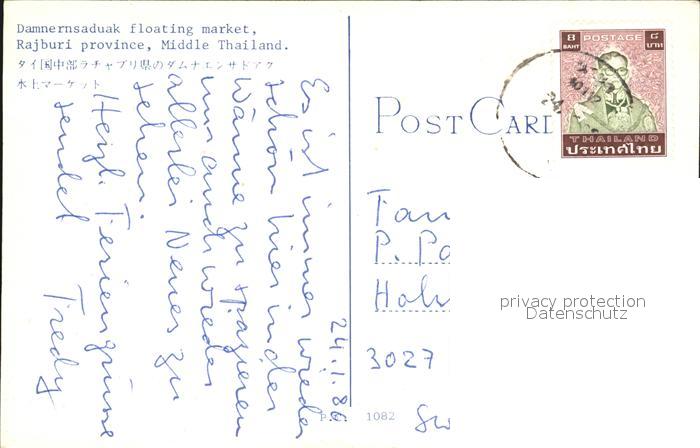 Damnernsaduak floating market,
Rajburi province, Middle Thailand.
タイ国中部ラチャブリ県のダムナエンサドアク
水上マーケット
24.1.86
Es ist immer wieder
schön hier in der
Wärme zu spazieren
und auch wieder
allerlei Neues zu
sehen.
Herzl. Feriengrüsse
sendet Fredy
POST CARD
8 POSTAGE ๘
BAHT บาท
THAILAND
ประเทศไทย
Fam
P. Po
Halv
3027
Sw
privacy protection
Datenschutz
1082